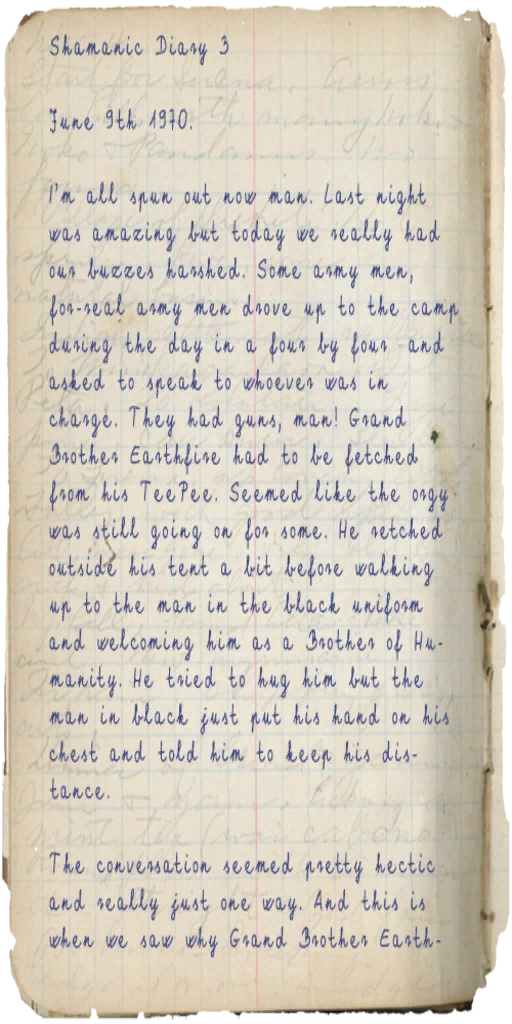 Shamanic Diary 3
June 9th 1970.
I'm all spun out now man. Last night
was amazing but today we really had
our buzzes harshed. Some army men,
for-real army men drove up to the camp
during the day in a four by four and
asked to speak to whoever was in
charge. They had guns, man! Grand
Brother Earthfire had to be fetched
from his TeePee. Seemed like the orgy
was still going on for some. He retched
outside his tent a bit before walking
up to the man in the black uniform
and welcoming him as a Brother of Hu-
manity. He tried to hug him but the
man in black just put his hand on his
chest and told him to keep his dis-
tance.
The conversation seemed pretty hectic
and really just one way. And this is
when we saw why Grand Brother Earth-